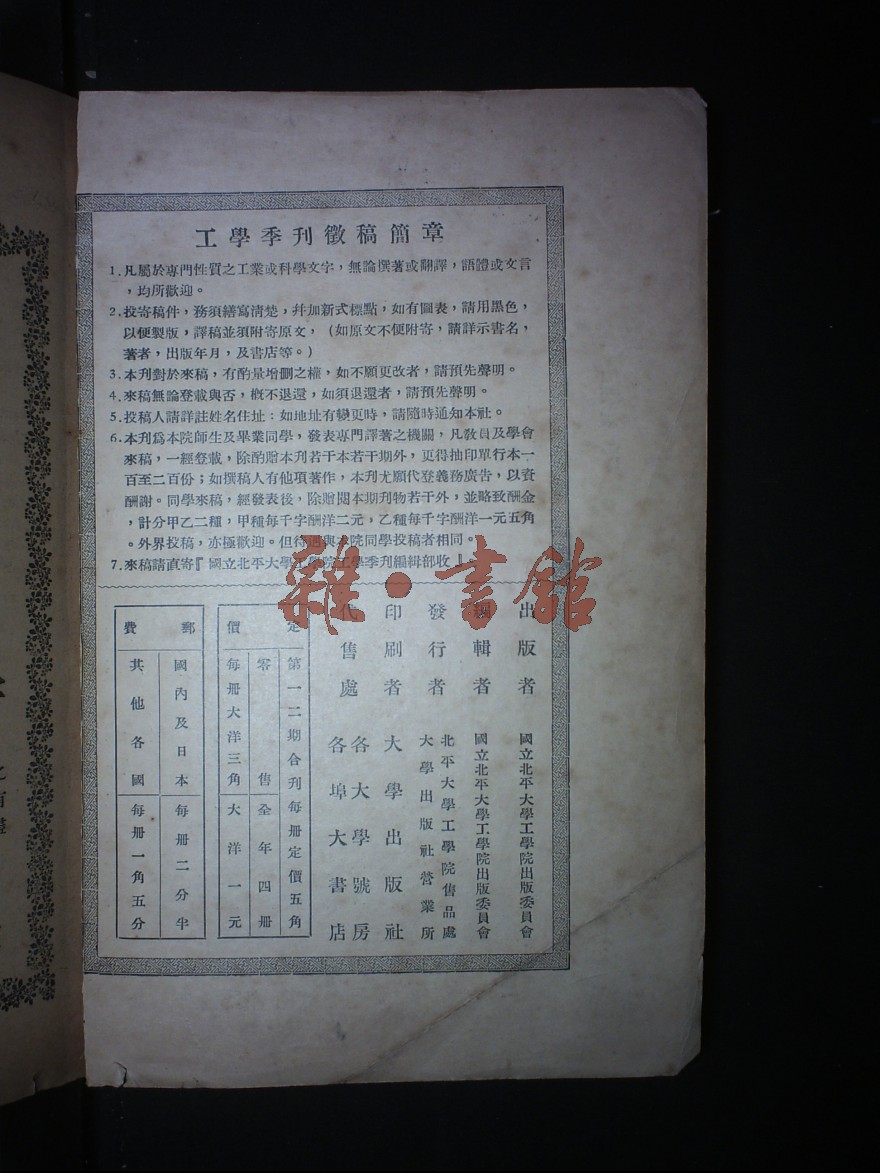 工學季刊徵稿簡章
1.凡屬於專門性質之工業或科學文字，無論撰著或翻譯，語體或文言
，均所歡迎。
2.投寄稿件，務須繕寫清楚，幷加新式標點，如有圖表，請用黑色，
以便製版，譯稿並須附寄原文，（如原文不便附寄，請詳示書名，
著者，出版年月，及書店等。）
3.本刊對於來稿，有酌量增刪之權，如不願更改者，請預先聲明。
4.來稿無論登載與否，槪不退還，如須退還者，請預先聲明。
5.投稿人請詳註姓名住址：如地址有變更時，請隨時通知本社。
6.本刊爲本院師生及畢業同學，發表專門譯著之機關，凡敎員及學會
來稿，一經登載，除酌贈本刊若干本若干期外，更得抽印單行本一
百至二百份；如撰稿人有他項著作，本刊尤願代登義務廣告，以資
酬謝。同學來稿，經發表後，除贈閱本期刊物若干外，並略致酬金
，計分甲乙二種，甲種每千字酬洋二元，乙種每千字酬洋一元五角
。外界投稿，亦極歡迎。但待遇與本院同學投稿者相同。
7.來稿請直寄『國立北平大學工學院工學季刊編緝部收』
雜·書館
出版者 國立北平大學工學院出版委員會
編輯者 國立北平大學工學院出版委員會
發行者 北平大學工學院售品處
大學出版社營業所
印刷者 大學出版社
代售處 各大學號房
各埠大書店
定價
第一二期合刋每册定價五角
零售 全年四册
每册大洋三角 大洋一元
郵費
國內及日本 每册二分半
其他各國 每册一角五分